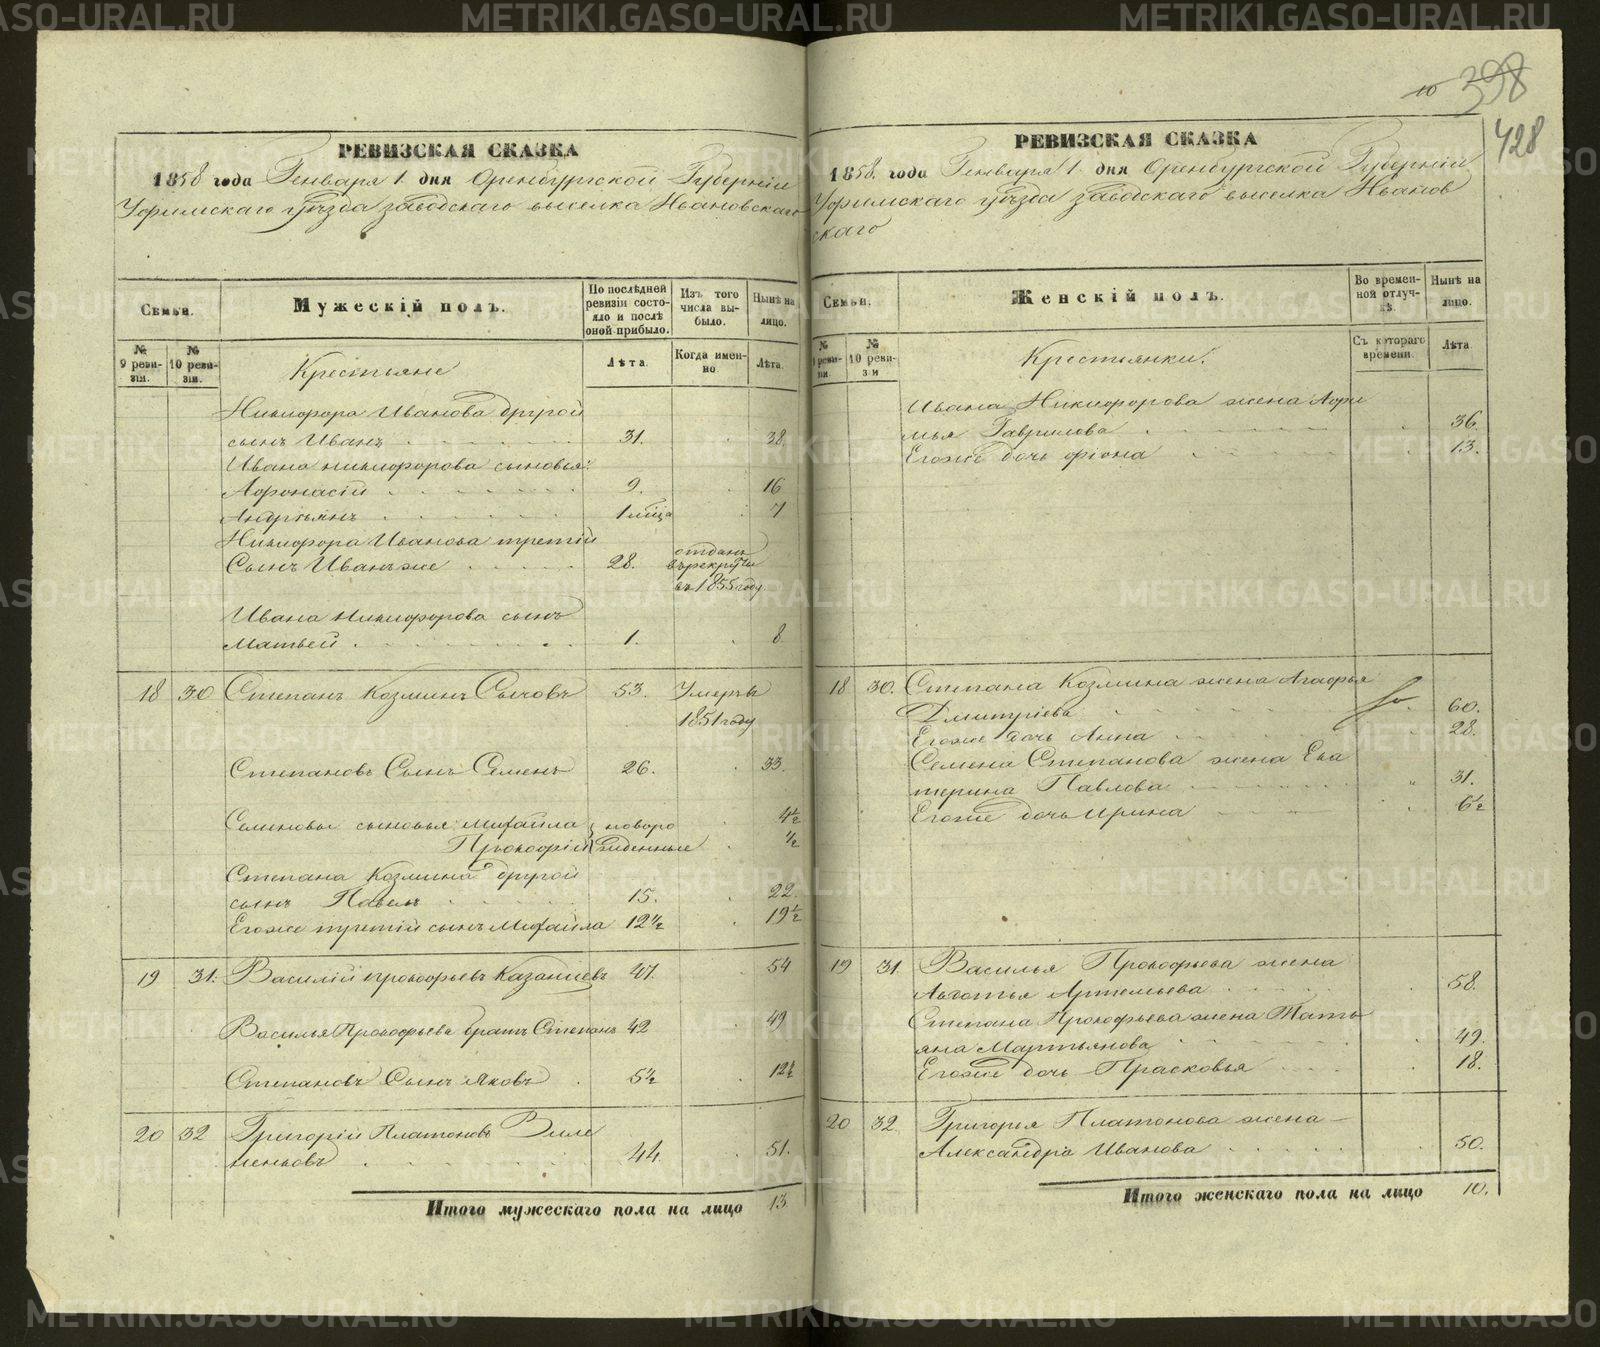 10 398
428
РЕВИЗСКАЯ СКАЗКА
1858 года Генваря 1 дня Оренбургской Губернии
Уфимскаго уѣзда заводскаго выселка Ивановскаго
Семьи.
Мужескій полъ.
По послѣдней ревизіи состояло и послѣ оной прибыло.
Изъ того числа выбыло.
Нынѣ на лицо.
№ 9 ревизіи.
№ 10 ревизіи.
Лѣта.
Когда именно
Лѣта.
Крестьяне
Никифора Иванова другой
сынъ Иванъ 31. 38
Ивана Никифорова сыновья:
Афонасій 9. 16
Андріянъ 1 мѣца 7
Никифора Иванова третій
Сынъ Иванъ же 28. отданъ въ рекруты въ 1855 году
Ивана Никифорова сынъ
Матвей 1. 8
18 30 Степанъ Козминъ Сычовъ 53. Умеръ в
1851 году
Степановъ Сынъ Семенъ 26. 33.
Семеновы сыновья Михайла } новоро 4½
Прокофій } жденные ½
Степана Козмина другой
сынъ Павелъ 15. 22.
Егоже третій сынъ Михайла 12½ 19½
19 31. Василій Прокофьевъ Казанцевъ 47. 54
Василья Прокофьева братъ Степанъ 42 49
Степановъ Сынъ Яковъ 5½ 12½
20 32 Григорій Платоновъ
44. 51.
Итого мужескаго пола на лицо 13
РЕВИЗСКАЯ СКАЗКА
1858. года Генваря 1 дня Оренбургской Губерніи
Уфимскаго уѣзда заводскаго выселка Иванов
скаго
Семьи.
Женскій полъ.
Во временной отлучкѣ.
Нынѣ на лицо.
№ 9 ревизіи
№ 10 ревизи
Съ котораго времени.
Лѣта.
Крестьянки.
Ивана Никифорова жена Афи
мья Гаврилова 36.
Егоже дочь Фіона 13.
18 30. Степана Козмина жена Агафья
Дмитріева 60.
Егоже дочь Анна 28.
Семена Степанова жена Ека
терина Павлова 31.
Егоже дочь Ирина 6½
19 31 Василья Прокофьева жена
Авдотья Артемьева 58.
Степана Прокофьева жена Тать
яна Мартьянова 49.
Егоже дочь Прасковья 18.
20 32. Григорья Платонова жена
Александра Иванова 50.
Итого женскаго пола на лицо 10.
METRIKI.GASO-URAL.RU